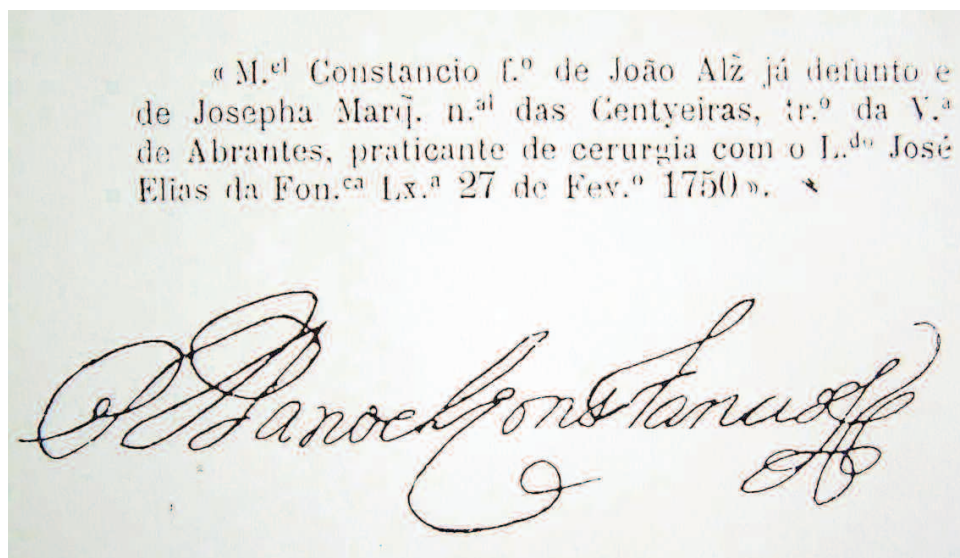 « M.ᵉˡ Constancio f.º de João Alz̃ já defunto e
de Josepha Marq̃. n.ᵃˡ das Centyeiras, tr.º da V.ª
de Abrantes, praticante de cerurgia com o L.ᵈº José
Elias da Fon.ᶜᵃ Lx.ª 27 de Fev.º 1750 ».
Manoel Constancio